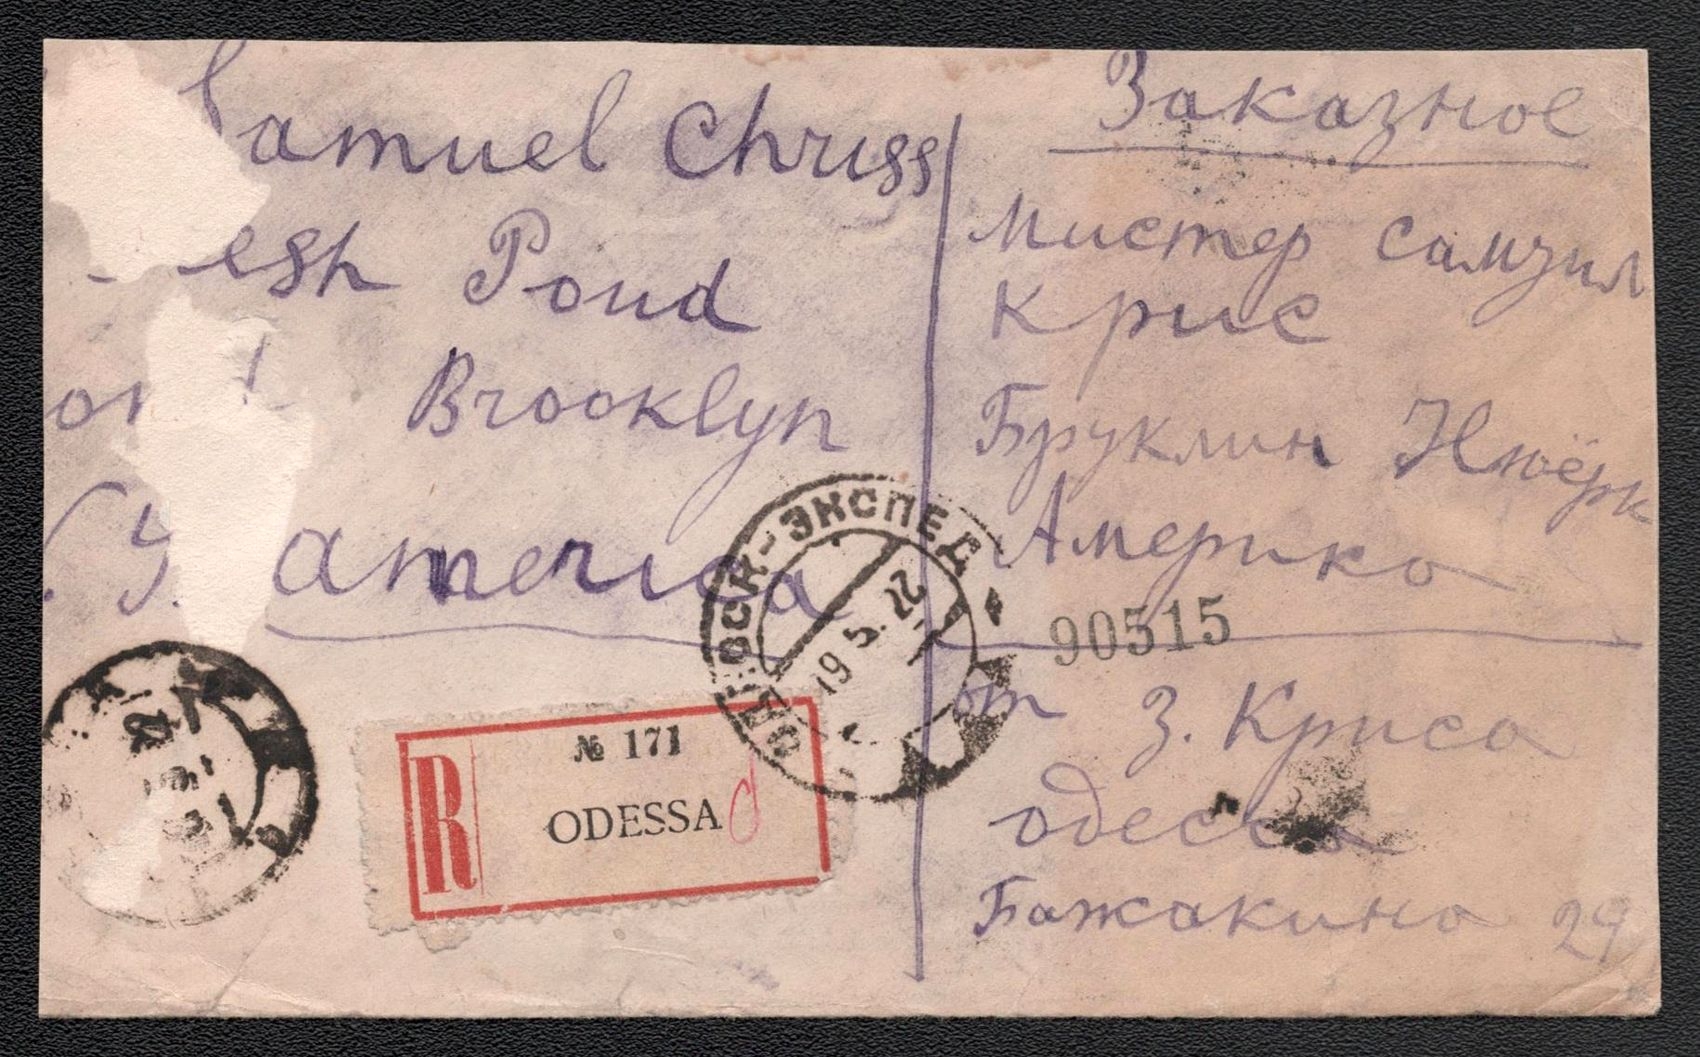 Samuel Chriss
esh Pond
Brooklyn
America
Заказное
Мистер Самуил
Крис
Бруклин Нюёрк
Америка
90515
от З. Криса
Одесса
Бажакина 29
ЭКСПЕД
19 5. 22
R
№ 171
ODESSA